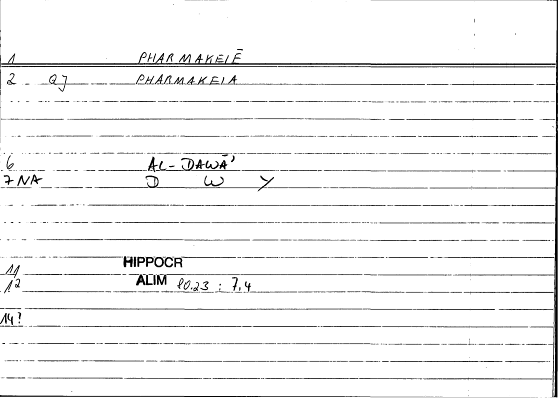 1 PHARMAKEIĒ
2 QJ PHARMAKEIA
6 AL-DAWĀ'
7 NA D W Y
11 HIPPOCR
12 ALIM 10.23 : 7,4
14!